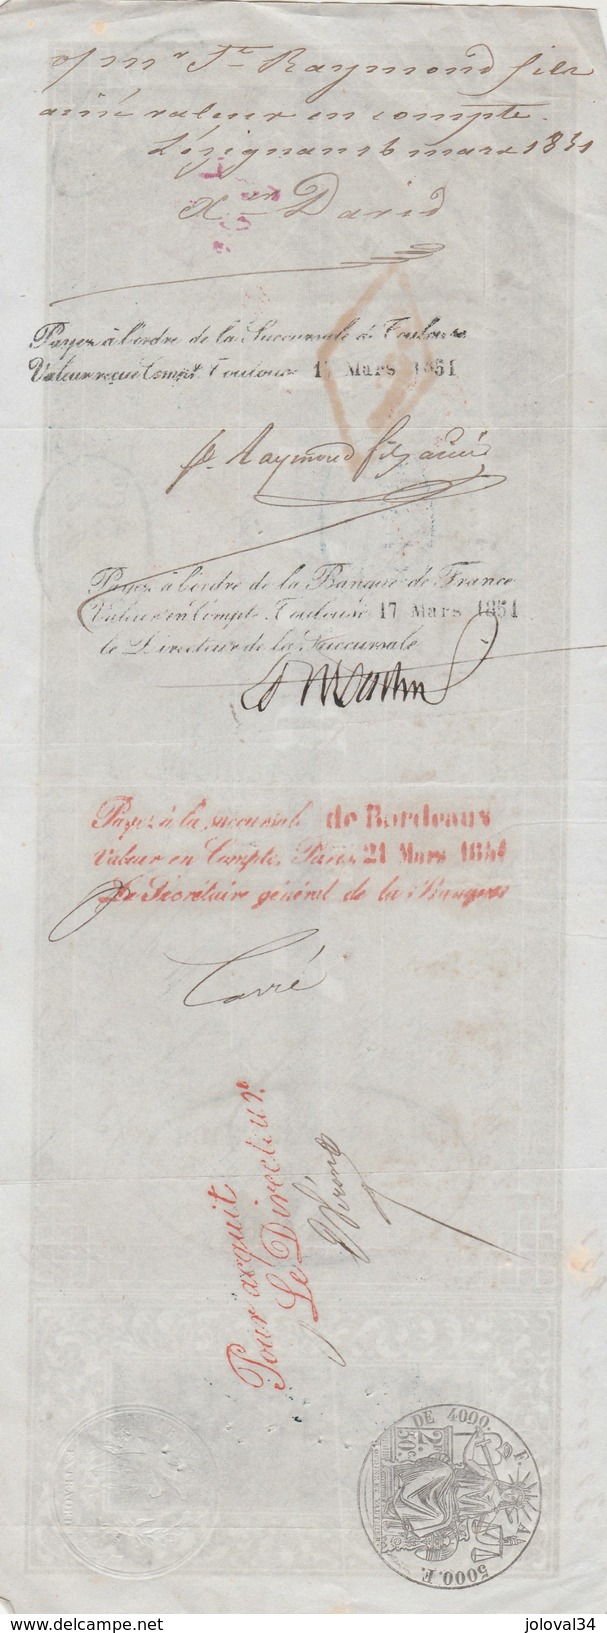 o/ Mr Fs Raymond fils
ainé valeur en compte.
Lézignan 6 mars 1851
Xer David
Payez à l'ordre de la Succursale de Toulouse
Valeur reçue Compt. Toulouse 17 Mars 1851
Raymond fils ainé
Payez à l'ordre de la Banque de France
Valeur en Compte. Toulouse 17 Mars 1851
le Directeur de la Succursale
Payez à la succursale de Bordeaux
Valeur en Compte, Paris 21 Mars 1851
Le Secrétaire général de la Banque
Carré
Pour acquit
Le Directeur
DE 4000. F. A 5000. F.
2f 50c
joloval34
www.delcampe.net